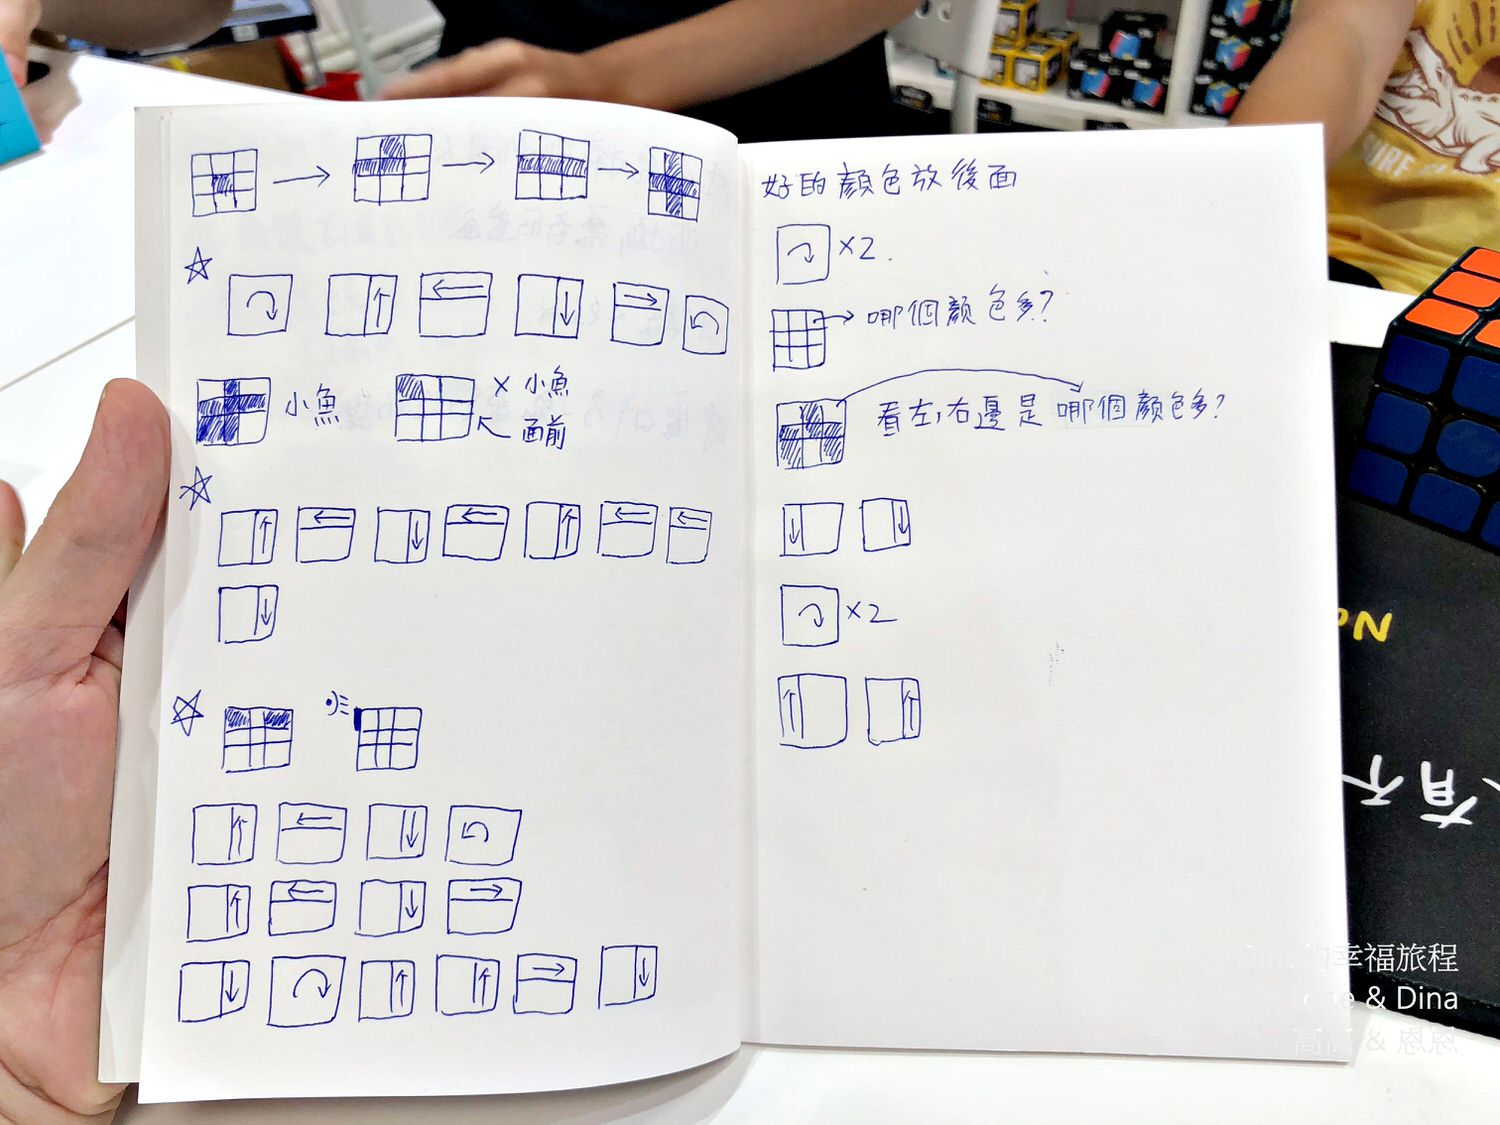 小魚
× 小魚
面前
好的顏色放後面
×2.
哪個顏色多?
看左,右邊是哪個顏色多?
×2
No
有不
Dina的幸福旅程
& Dina
高高 & 恩恩